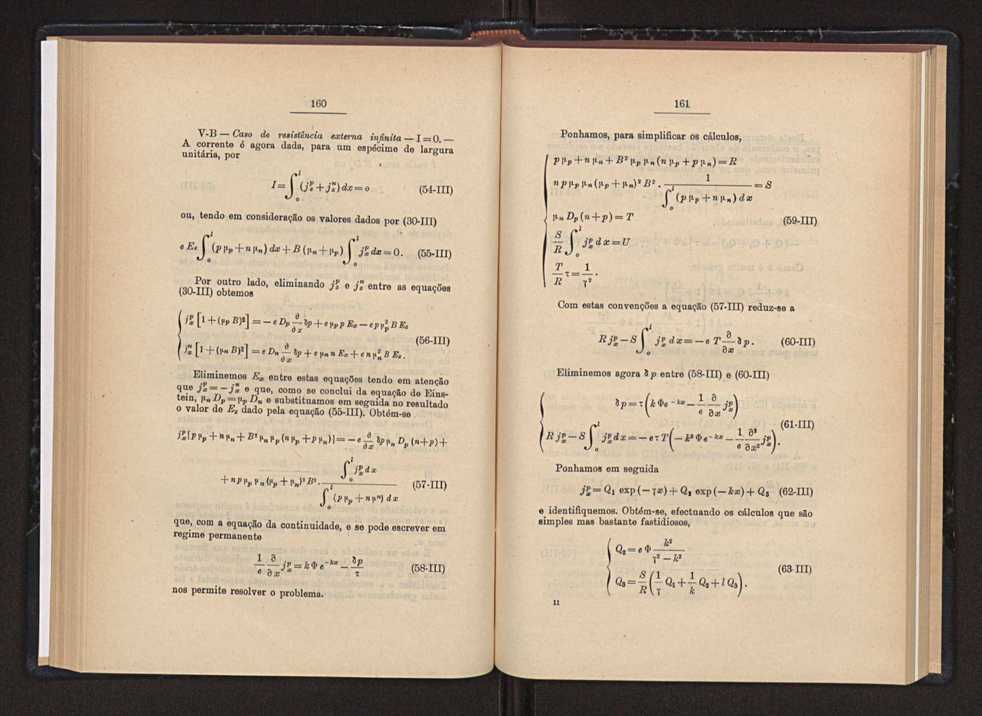 160
V-B — Caso de resistência externa infinita — I = 0. —
A corrente é agora dada, para um espécime de largura
unitária, por
I = ∫₀ˡ (jₓᵖ + jₓⁿ) dx = o (54-III)
ou, tendo em consideração os valores dados por (30-III)
e E_z ∫₀ˡ (p μ_p + n μ_n) dx + B (μ_n + μ_p) ∫₀ˡ jₓᵖ dx = 0. (55-III)
Por outro lado, eliminando j_zᵖ e j_zⁿ entre as equações
(30-III) obtemos
jₓᵖ [1 + (μ_p B)²] = — e D_p ∂/∂x δp + e μ_p p Eₓ — e p μ_p² B E_z
jₓⁿ [1 + (μ_n B)²] = e D_n ∂/∂x δp + e μ_n n Eₓ + e n μ_n² B E_z. (56-III)
Eliminemos Eₓ entre estas equações tendo em atenção
que jₓᵖ = — jₓⁿ e que, como se conclui da equação de Eins-
tein, μ_n D_p = μ_p D_n e substituamos em seguida no resultado
o valor de E_z dado pela equação (55-III). Obtém-se
jₓᵖ [p μ_p + n μ_n + B² μ_n μ_p (n μ_p + p μ_n)] = — e ∂/∂x δp μ_n D_p (n + p) +
+ n p μ_p μ_n (μ_p + μ_n)² B² . ∫₀ˡ jₓᵖ dx / ∫₀ˡ (p μ_p + n μⁿ) dx (57-III)
que, com a equação da continuidade, e se pode escrever em
regime permanente
1/e ∂/∂x jₓᵖ = k Φ e^(−kx) — δp/τ (58-III)
nos permite resolver o problema.
161
Ponhamos, para simplificar os cálculos,
p μ_p + n μ_n + B² μ_p μ_n (n μ_p + p μ_n) = R
n p μ_p μ_n (μ_p + μ_n)² B² . 1 / ∫₀ˡ (p μ_p + n μ_n) dx = S
μ_n D_p (n + p) = T (59-III)
S/R ∫₀ˡ jₓᵖ dx = U
T/R τ = 1/γ² .
Com estas convenções a equação (57-III) reduz-se a
R jₓᵖ — S ∫₀ˡ jₓᵖ dx = — e T ∂/∂x δp. (60-III)
Eliminemos agora δp entre (58-III) e (60-III)
δp = τ (k Φ e^(−kx) — 1/e ∂/∂x jₓᵖ)
R jₓᵖ — S ∫₀ˡ jₓᵖ dx = — e τ T (— k² Φ e^(−kx) — 1/e ∂²/∂x² jₓᵖ). (61-III)
Ponhamos em seguida
jₓᵖ = Q₁ exp (— γx) + Q₂ exp (— kx) + Q₃ (62-III)
e identifiquemos. Obtém-se, efectuando os cálculos que são
simples mas bastante fastidiosos,
Q₂ = e Φ k² / (γ² — k²)
Q₃ = S/R (1/γ Q₁ + 1/k Q₂ + l Q₃). (63-III)
11